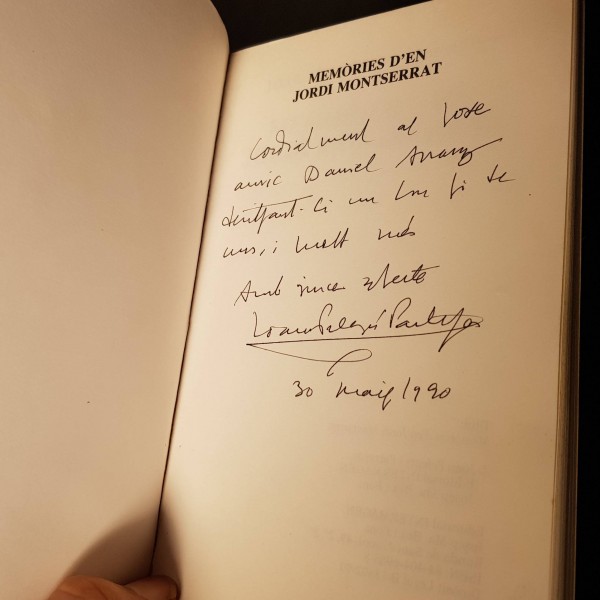 MEMÒRIES D'EN
JORDI MONTSERRAT
Cordialment al
amic Daniel Arranz
desitjant-li un bon fi de
mes, i molt més
Amb sincer afecte
30 maig 1990